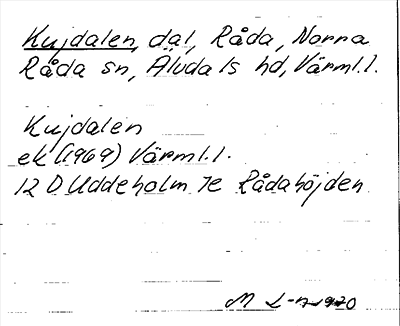 Kujdalen, dal, Råda, Norra
Råda sn, Älvdals hd, Värml.l.
Kujdalen
ek (1969) Värml.l.
12 D Uddeholm 7e Rådahöjden
M L-n 1970